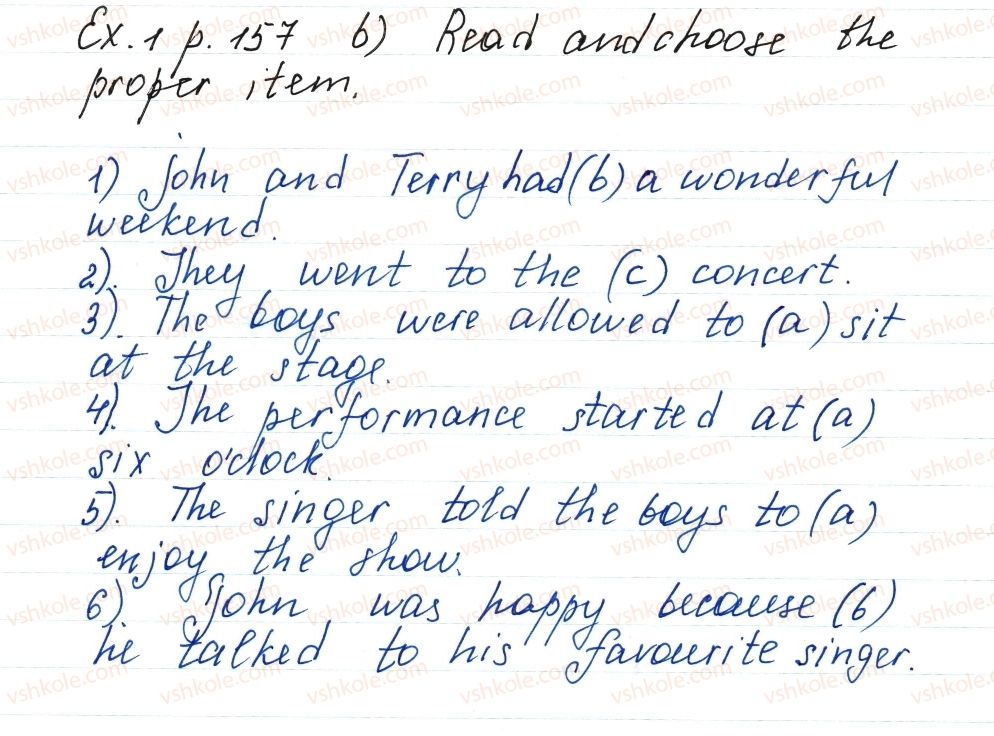 Ex. 1 p. 157 b) Read and choose the
proper item.
1) John and Terry had (b) a wonderful
weekend.
2). They went to the (c) concert.
3). The boys were allowed to (a) sit
at the stage.
4). The performance started at (a)
six o'clock.
5). The singer told the boys to (a)
enjoy the show.
6) John was happy because (b)
he talked to his favourite singer.